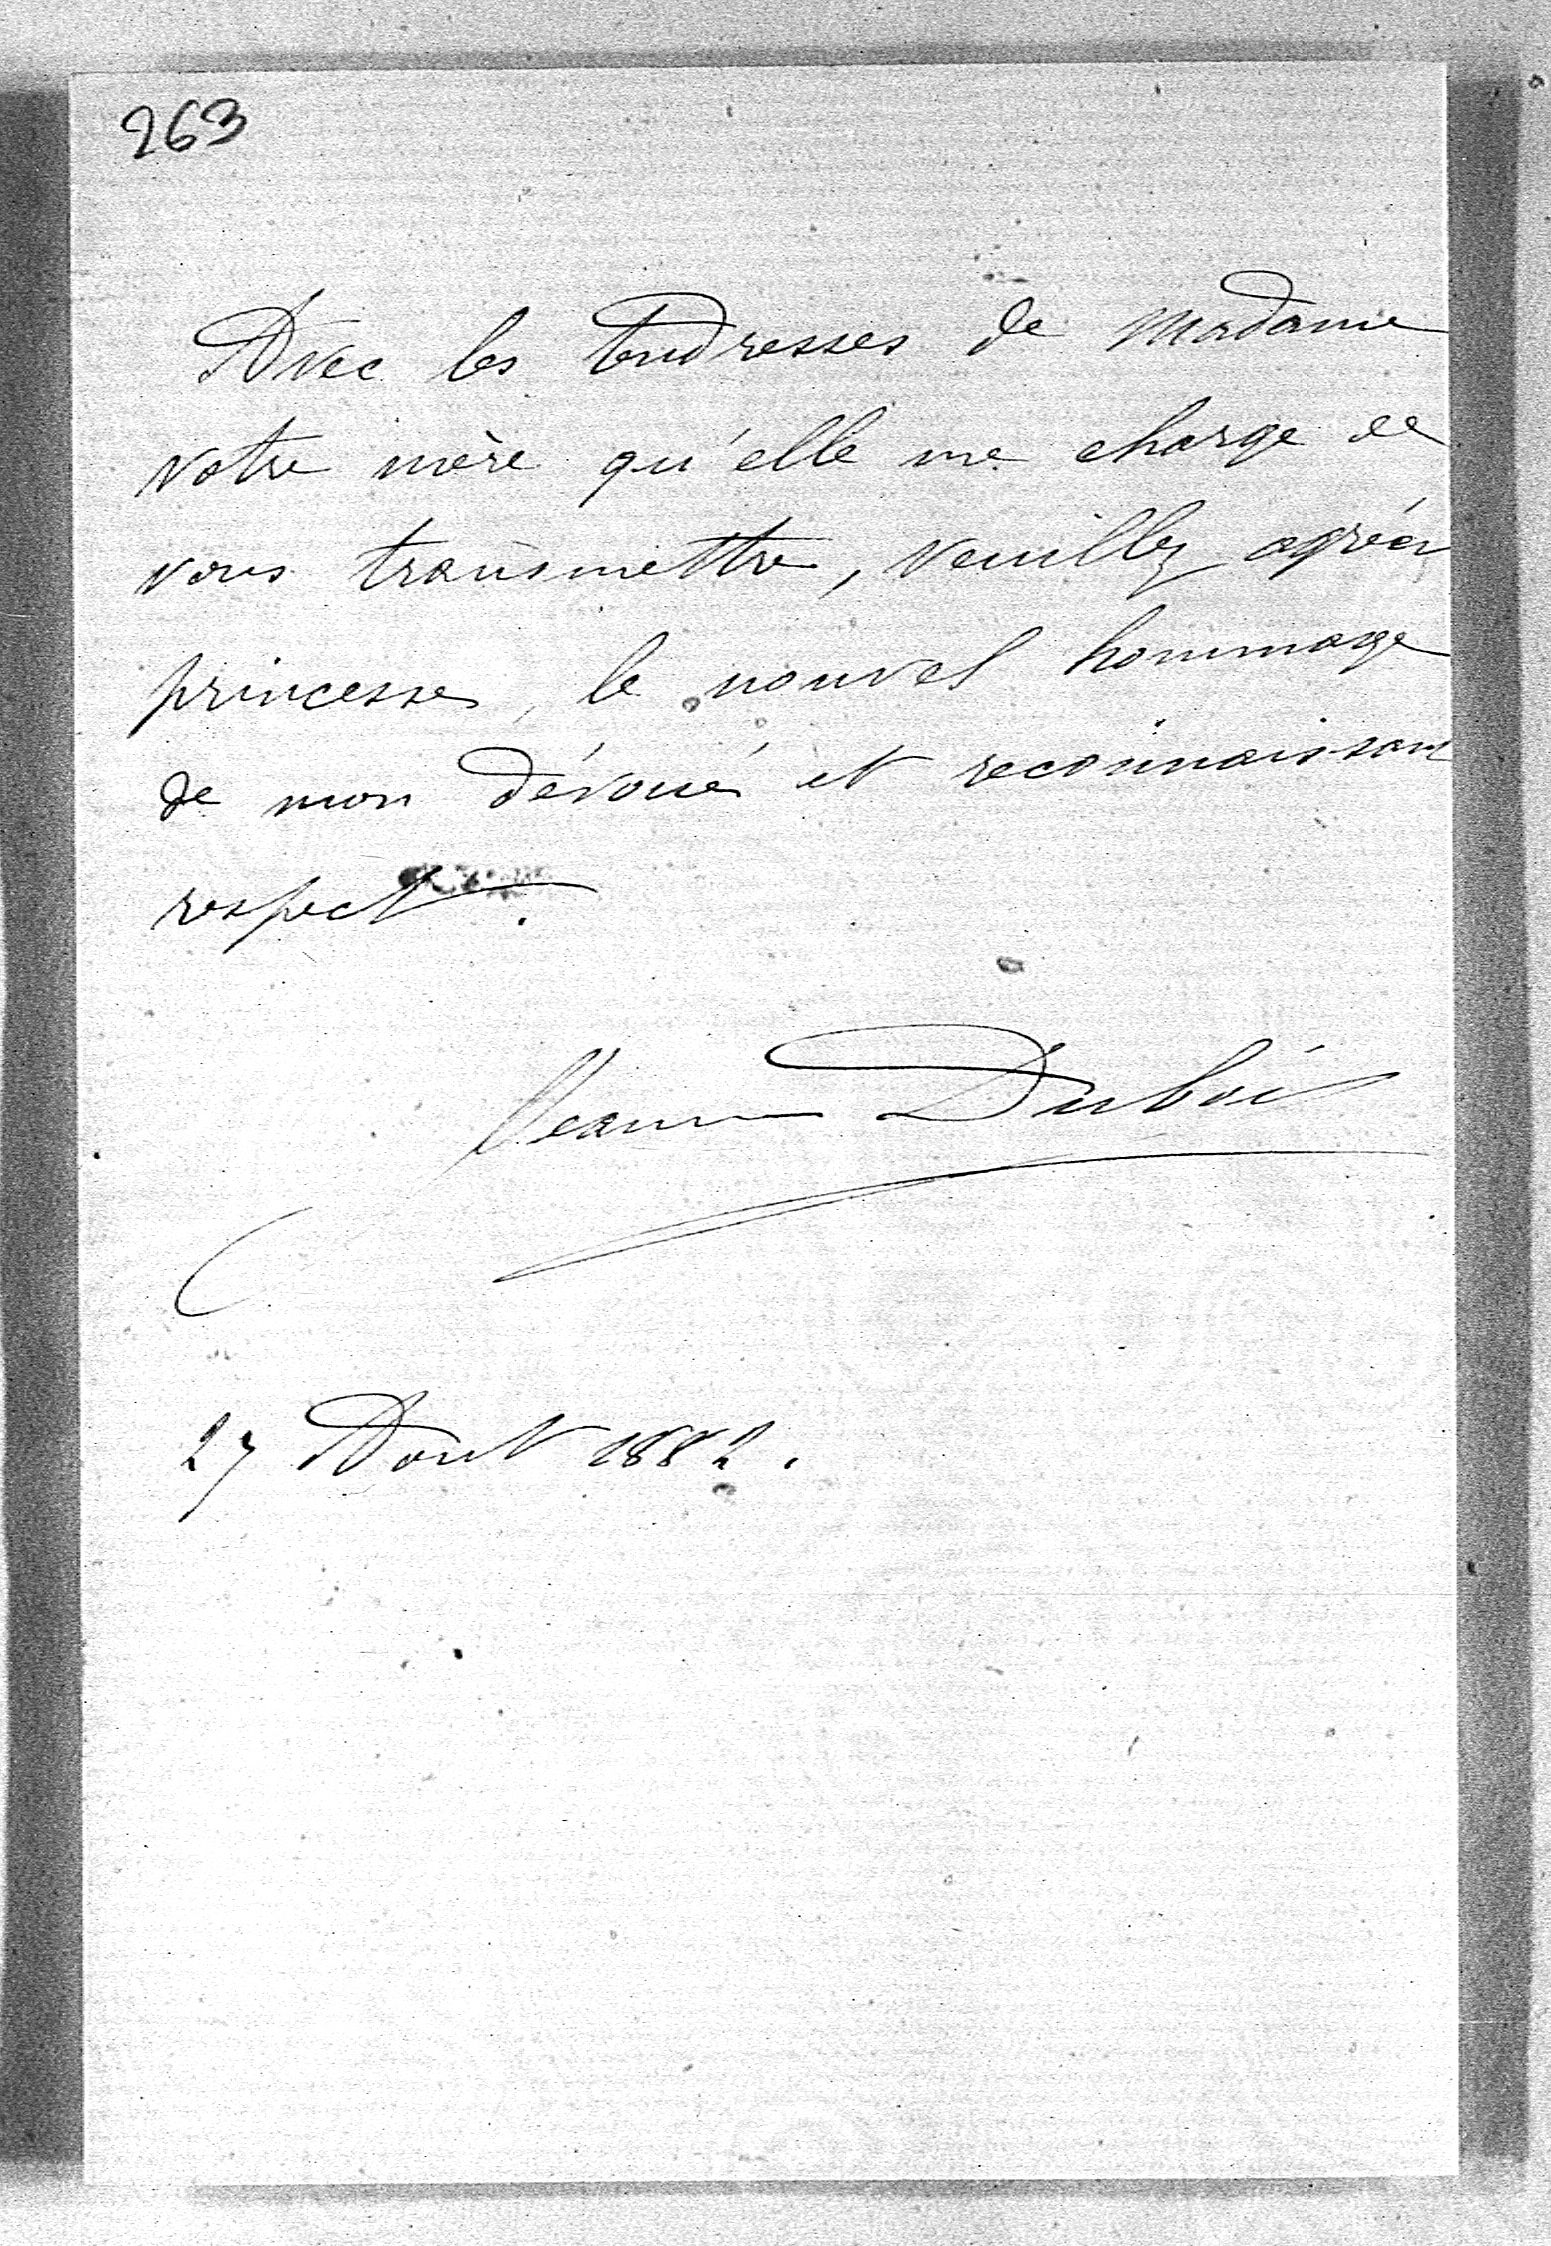 263
Avec les tendresses de Madame
votre mère qu'elle me charge de
vous transmettre, veuillez agréer
princesse, le nouvel hommage
de mon dévoué et reconnaissant
respect.
Jeanne Dubois
27 Août 1882.